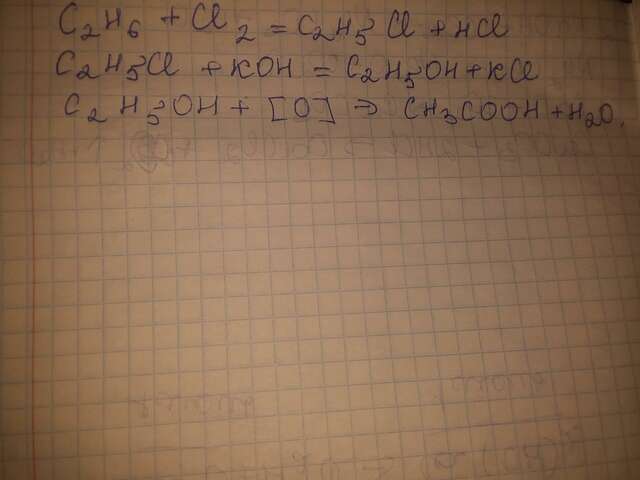 C₂H₆ + Cl₂ = C₂H₅Cl + HCl
C₂H₅Cl + KOH = C₂H₅OH + KCl
C₂H₅OH + [O] → CH₃COOH + H₂O.